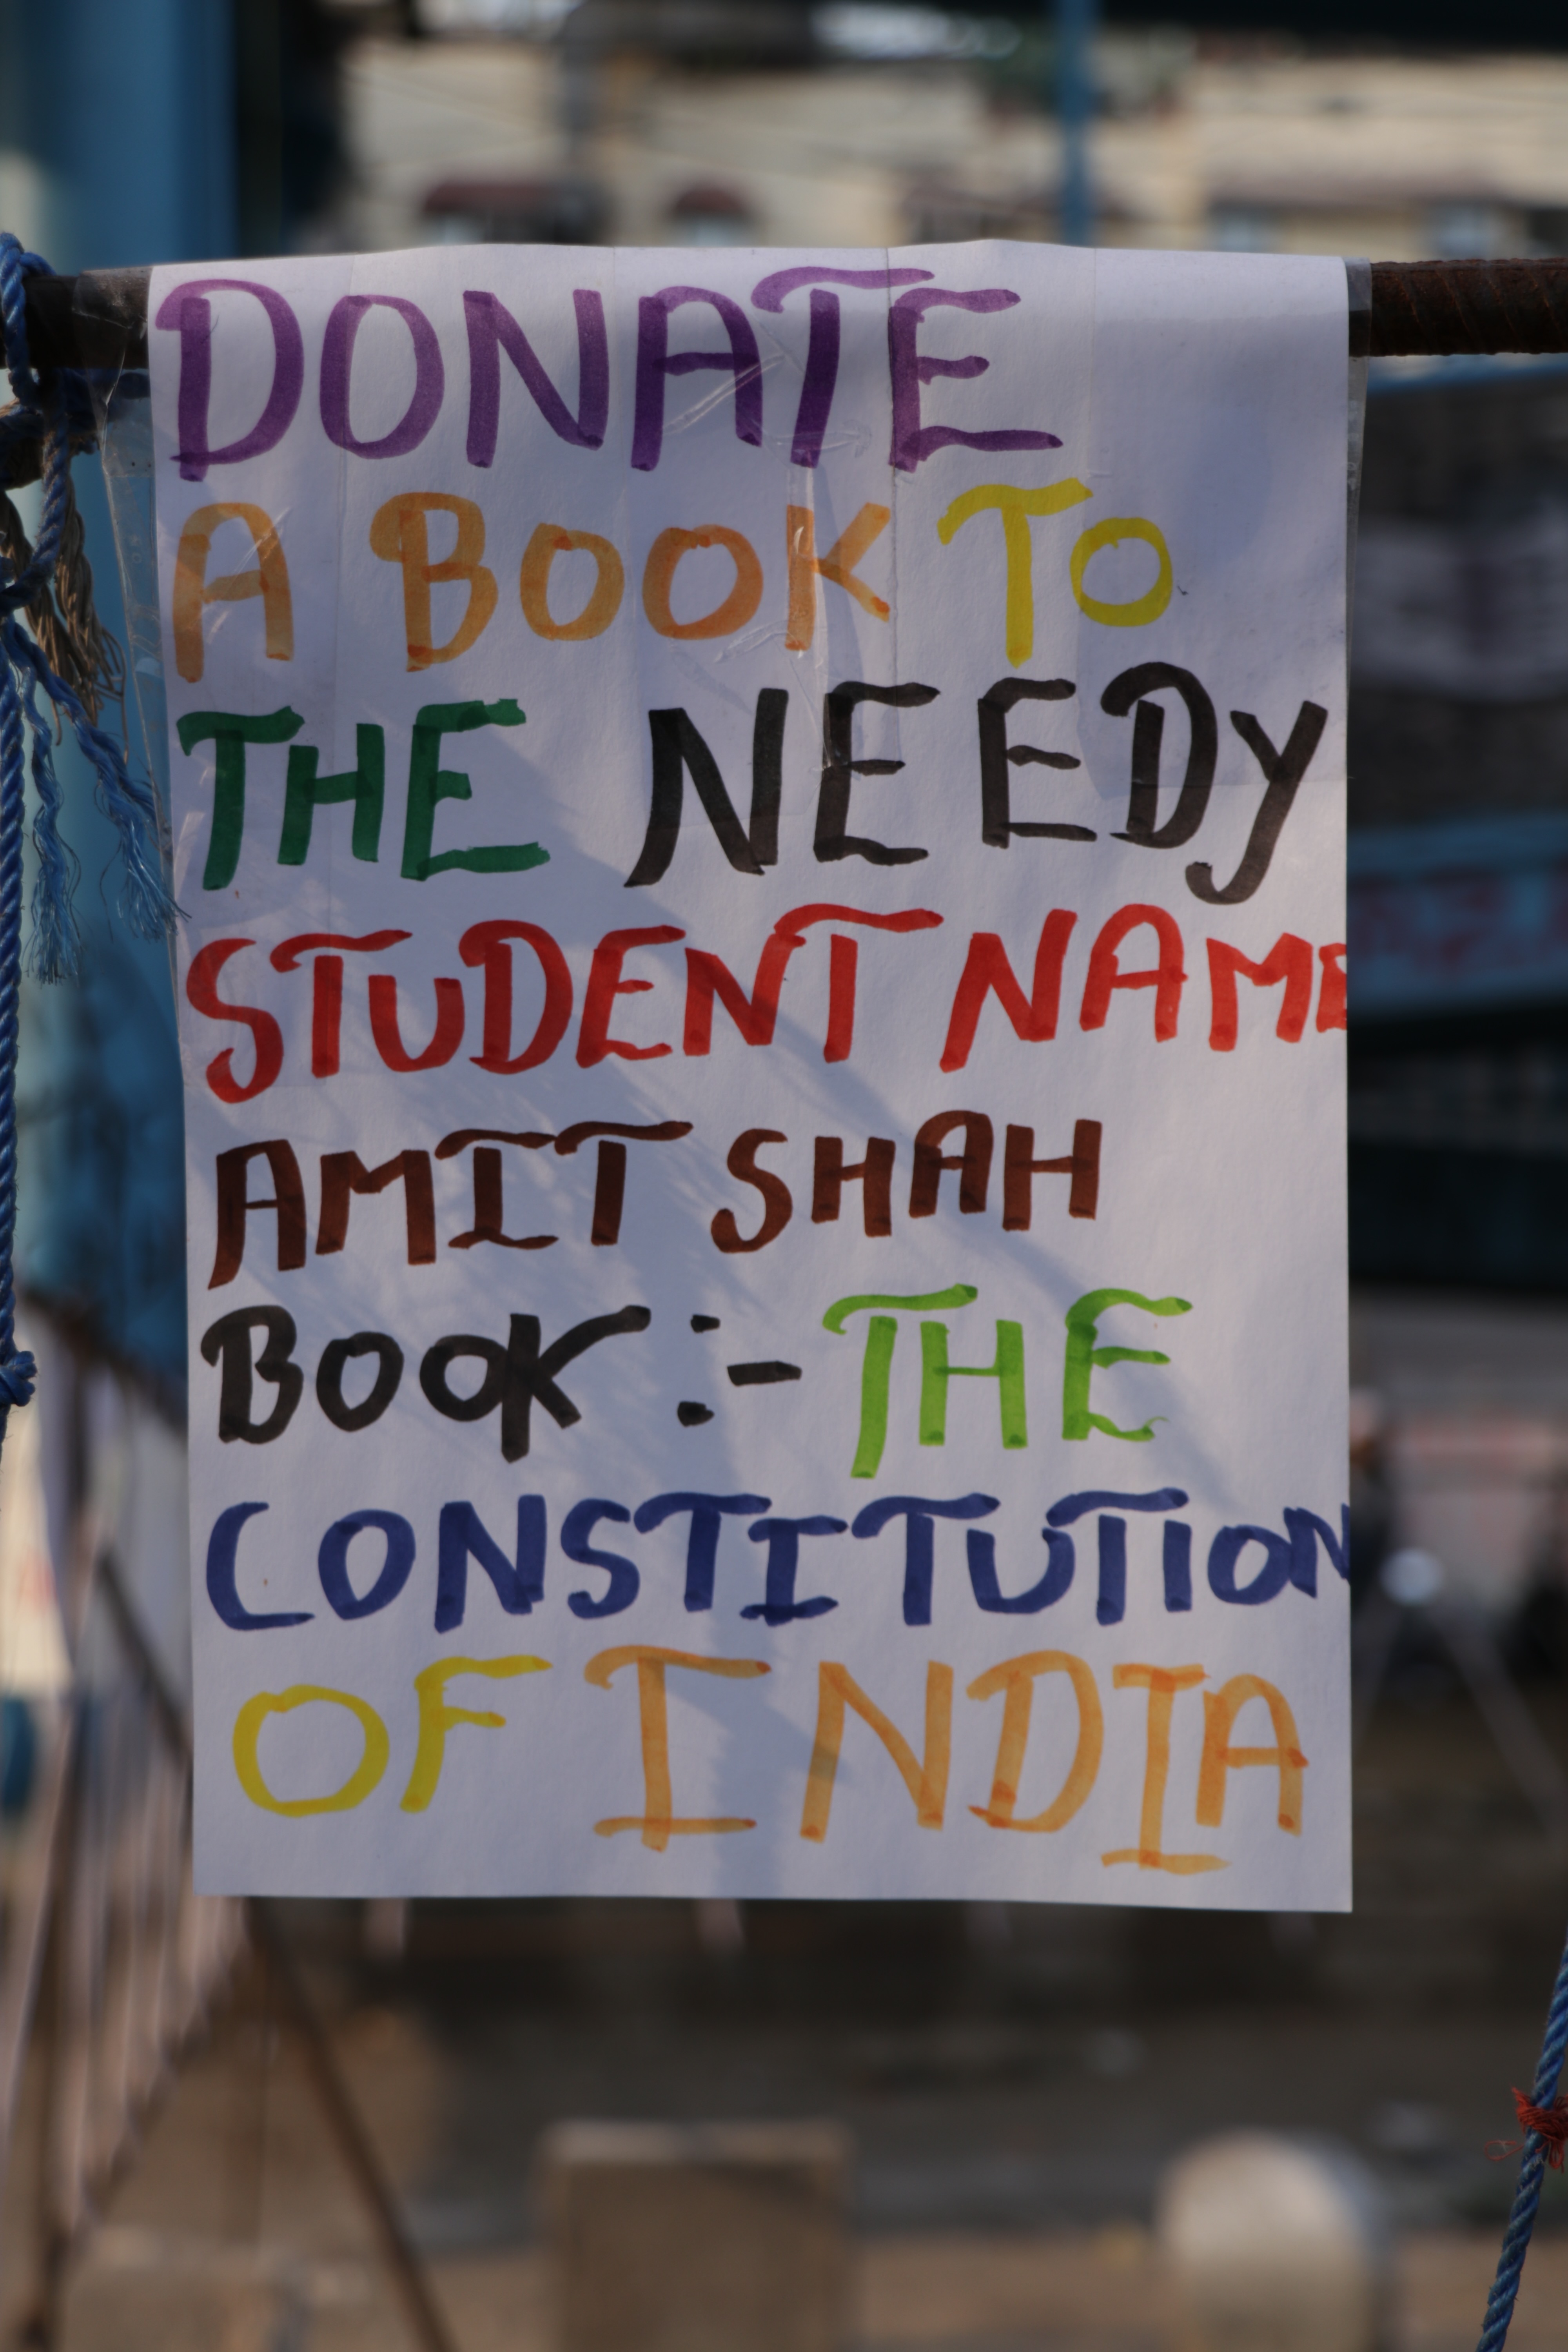 DONATE
A BOOK TO
THE NEEDY
STUDENT NAME
AMIT SHAH
BOOK :- THE
CONSTITUTION
OF INDIA